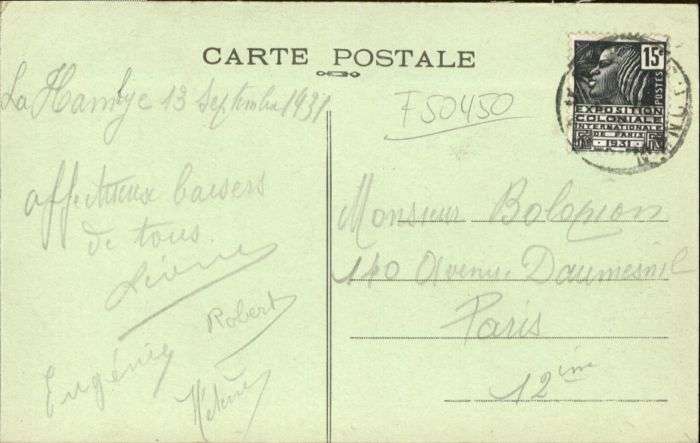 CARTE POSTALE
15c
POSTES
EXPOSITION
COLONIALE
INTERNATIONALE
DE PARIS
1931
La Hambye 13 Septembre 1931
F50450
affectueux baisers
de tous.
Robert
Eugénie
Monsieur
140 Avenue Daumesnil
Paris
12ème